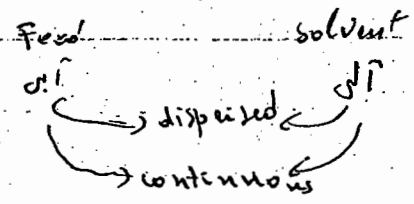 Feed solvent
dispersed
continuous